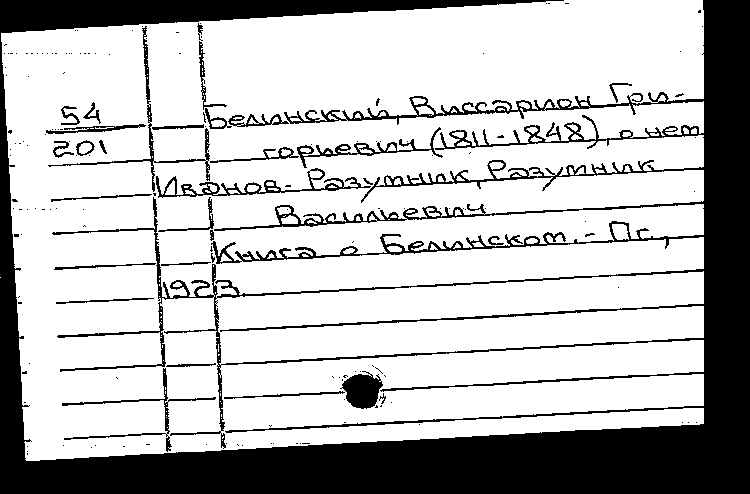 54
201
Белинский, Виссарион Гри-
горьевич (1811-1848), о нем
Иванов-Разумник, Разумник
Васильевич
Книга о Белинском. - Пг.,
1923.